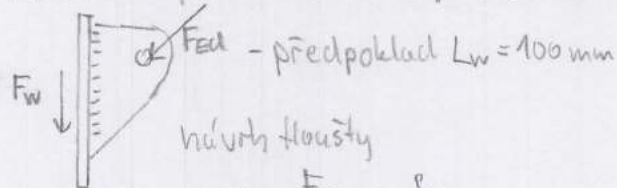 F_Ed - předpoklad L_w = 100 mm
F_w
návrh tloušty
F